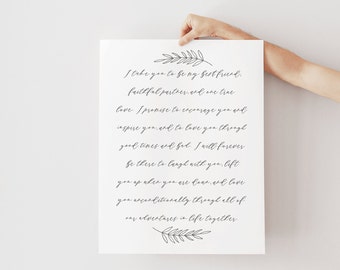 I take you to be my best friend,
faithful partner, and one true
love. I promise to encourage you and
inspire you, and to love you through
good times and bad. I will forever
be there to laugh with you, lift
you up when you are down, and love
you unconditionally through all of
our adventures in life together.